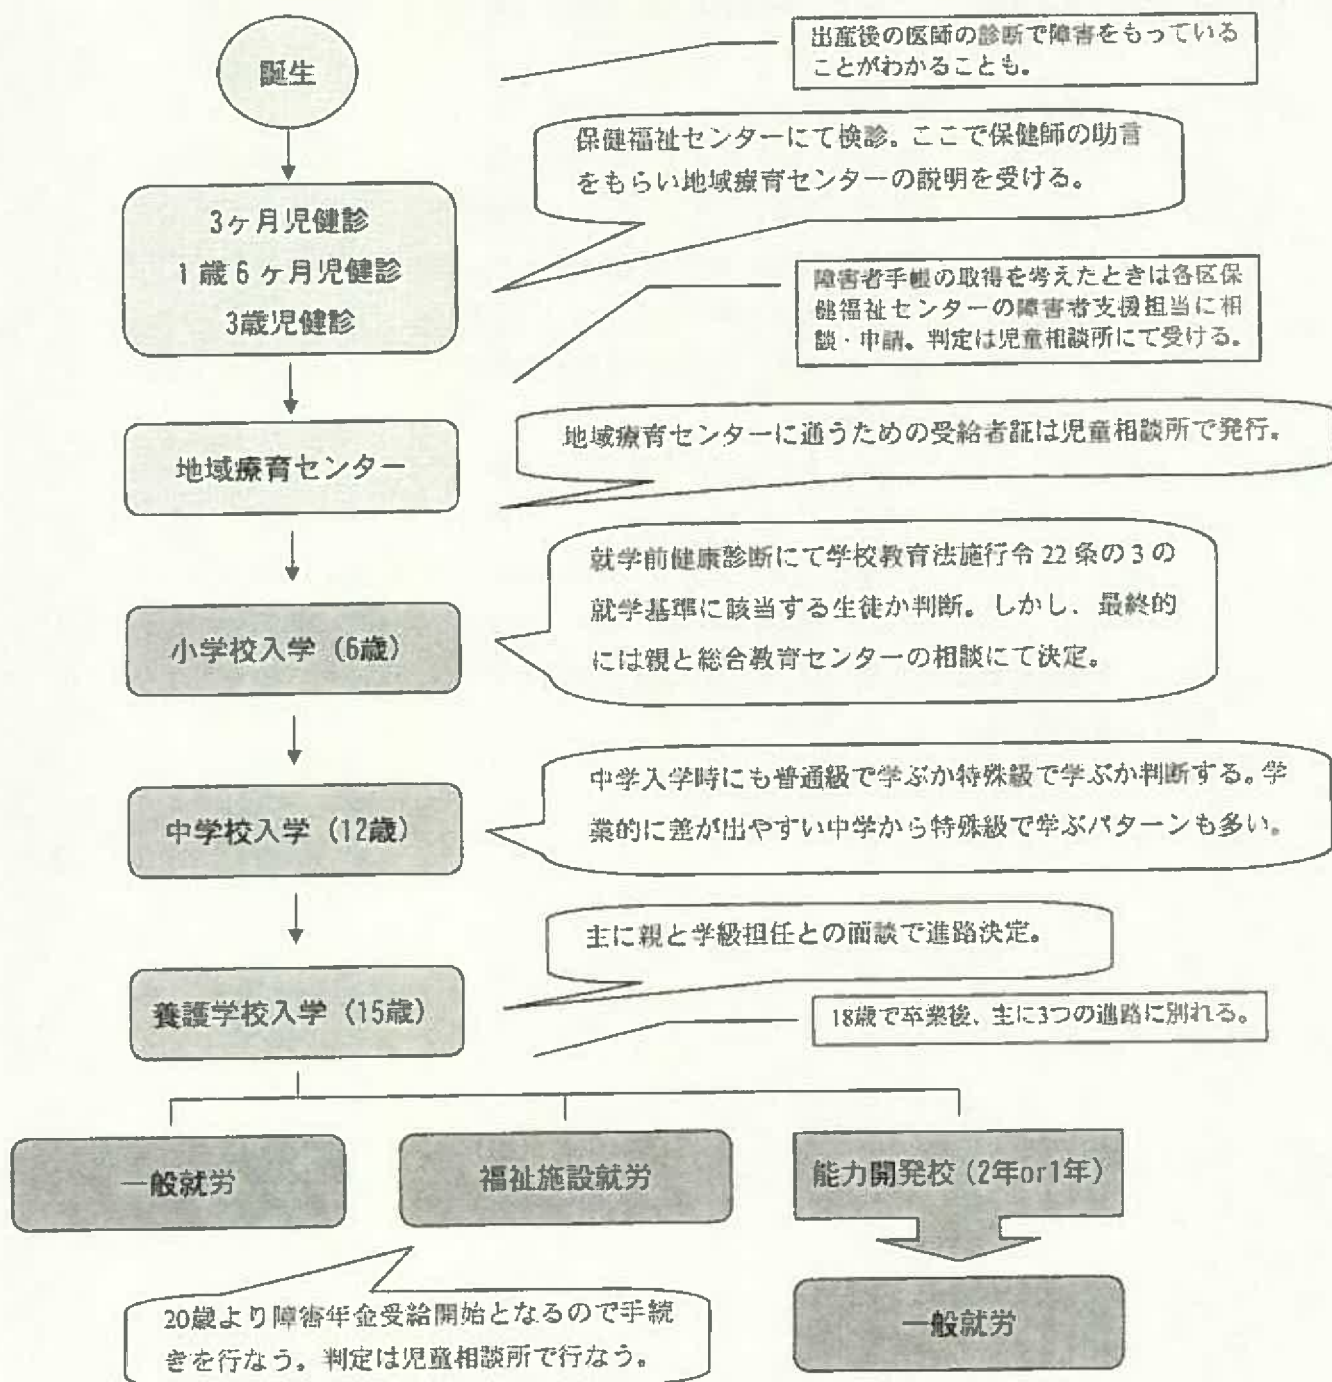 誕生
出産後の医師の診断で障害をもっている
ことがわかることも。
保健福祉センターにて検診。ここで保健師の助言
をもらい地域療育センターの説明を受ける。
3ヶ月児健診
1歳6ヶ月児健診
3歳児健診
障害者手帳の取得を考えたときは各区保
健福祉センターの障害者支援担当に相
談・申請。判定は児童相談所にて受ける。
地域療育センターに通うための受給者証は児童相談所で発行。
地域療育センター
就学前健康診断にて学校教育法施行令22条の3の
就学基準に該当する生徒か判断。しかし、最終的
には親と総合教育センターの相談にて決定。
小学校入学(6歳)
中学入学時にも普通級で学ぶか特殊級で学ぶか判断する。学
業的に差が出やすい中学から特殊級で学ぶパターンも多い。
中学校入学(12歳)
主に親と学級担任との面談で進路決定。
養護学校入学(15歳)
18歳で卒業後、主に3つの進路に別れる。
一般就労
福祉施設就労
能力開発校(2年or1年)
20歳より障害年金受給開始となるので手続
きを行なう。判定は児童相談所で行なう。
一般就労